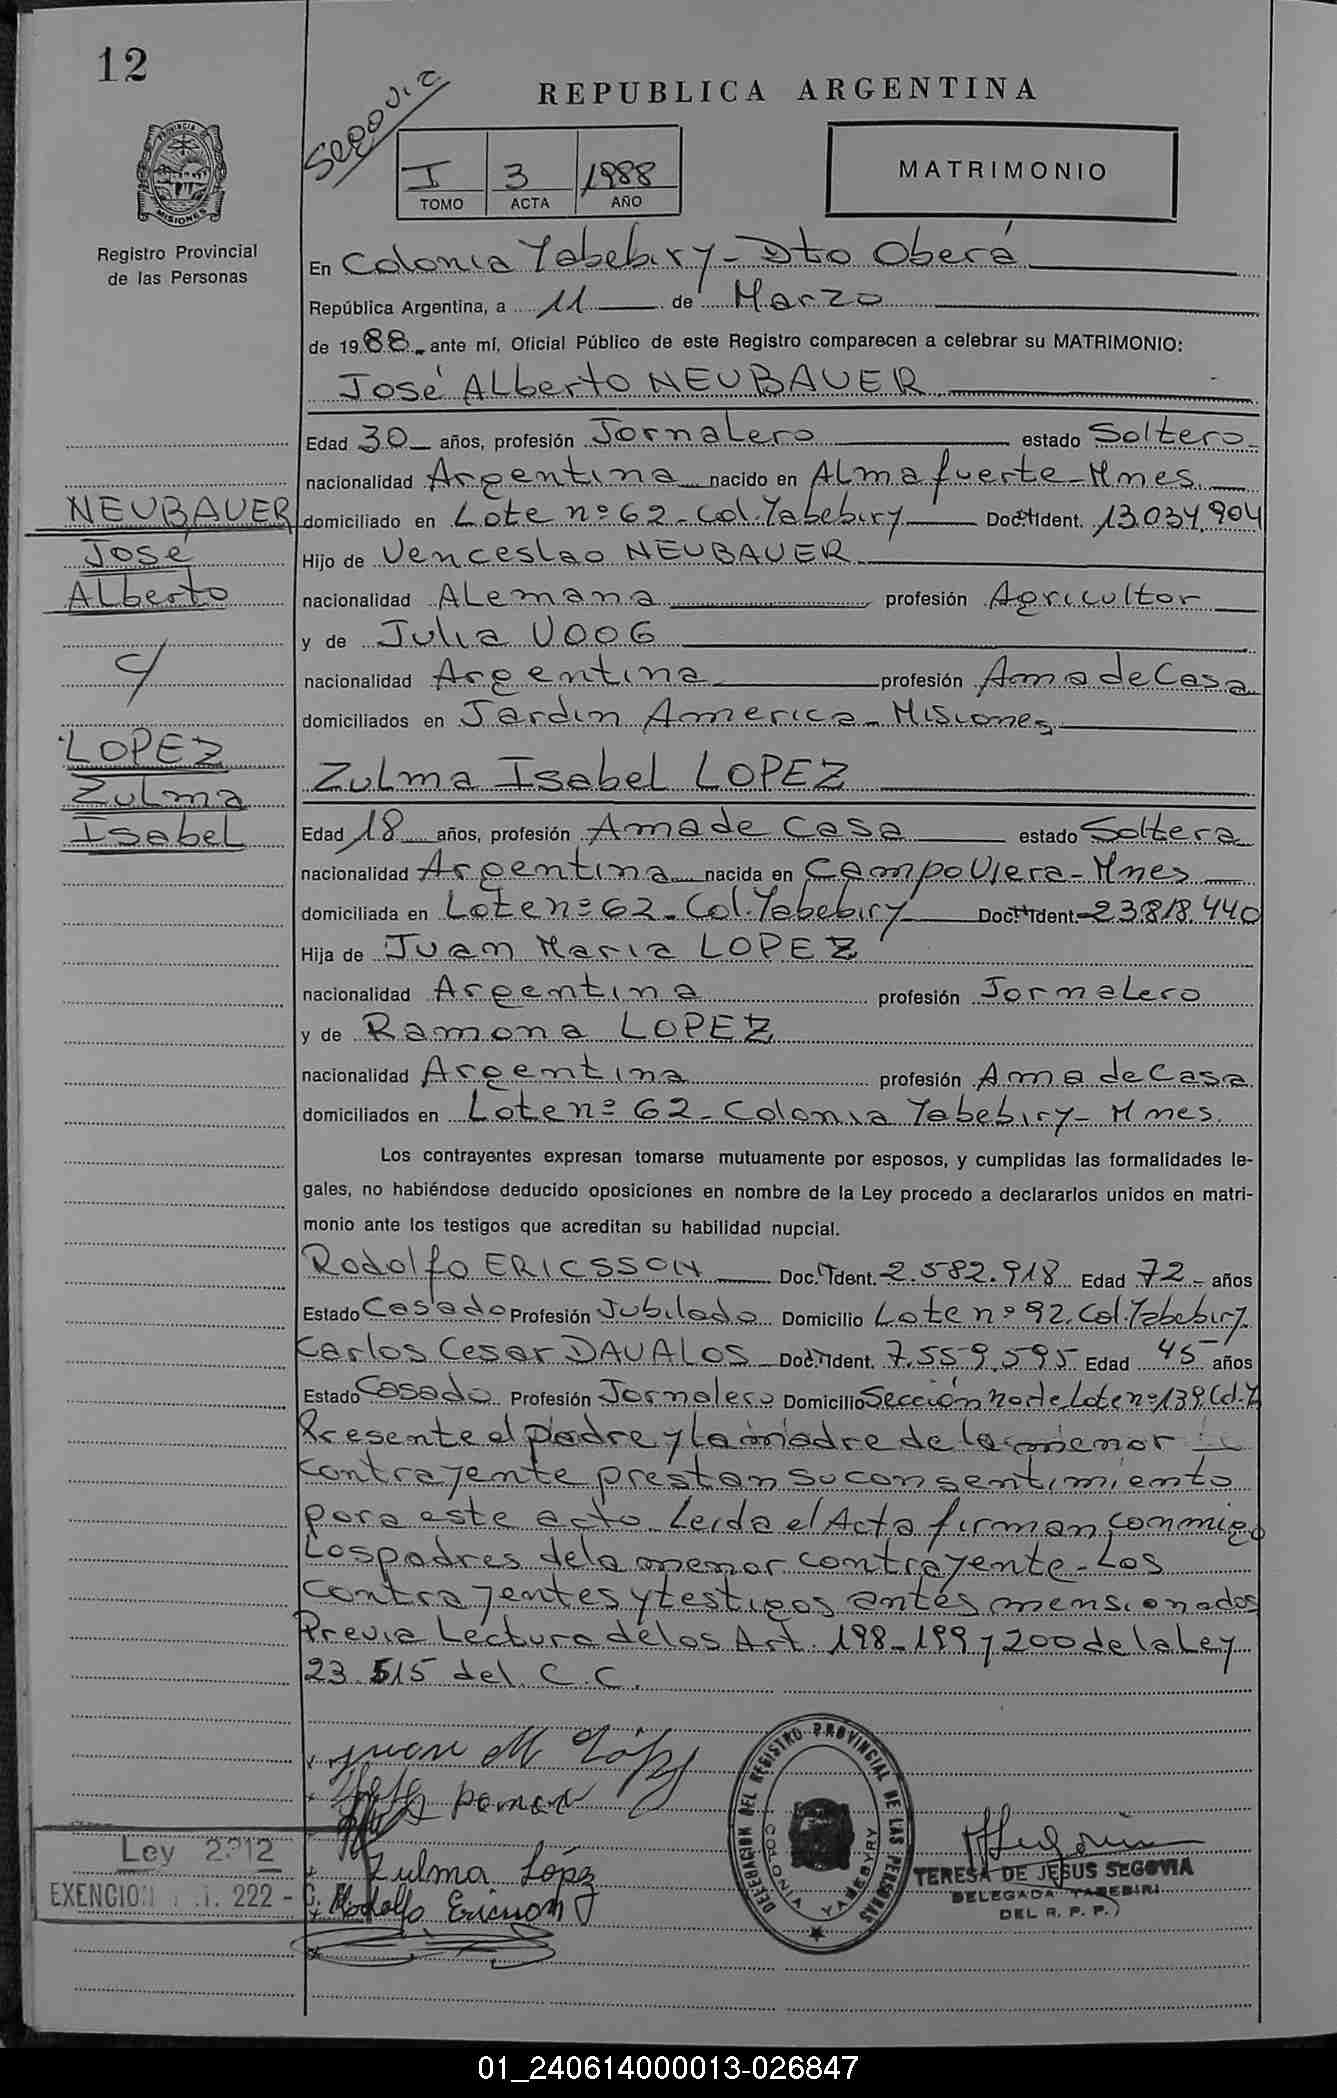 12
REPUBLICA ARGENTINA
Segovia
PROVINCIA DE MISIONES
I 3 1988
TOMO ACTA AÑO
MATRIMONIO
Registro Provincial
de las Personas
En Colonia Yabebiry - Dto Oberá
República Argentina, a 11 de Marzo
de 1988 ante mí, Oficial Público de este Registro comparecen a celebrar su MATRIMONIO:
José Alberto NEUBAUER
Edad 30 años, profesión Jornalero estado Soltero
nacionalidad Argentina nacido en Almafuerte - Mnes.
domiciliado en Lote nº 62 - Col. Yabebiry Doc. Ident. 13.034.904
Hijo de Venceslao NEUBAUER
nacionalidad Alemana profesión Agricultor
y de Julia VOOG
nacionalidad Argentina profesión Ama de Casa
domiciliados en Jardin America - Misiones
NEUBAUER
José
Alberto
c/
LOPEZ
Zulma
Isabel
Zulma Isabel LOPEZ
Edad 18 años, profesión Ama de Casa estado Soltera
nacionalidad Argentina nacida en Campo Viera - Mnes
domiciliada en Lote nº 62 - Col. Yabebiry Doc. Ident. 23.818.440
Hija de Juan Maria LOPEZ
nacionalidad Argentina profesión Jornalero
y de Ramona LOPEZ
nacionalidad Argentina profesión Ama de Casa
domiciliados en Lote nº 62 - Colonia Yabebiry - Mnes.
Los contrayentes expresan tomarse mutuamente por esposos, y cumplidas las formalidades le-
gales, no habiéndose deducido oposiciones en nombre de la Ley procedo a declararlos unidos en matri-
monio ante los testigos que acreditan su habilidad nupcial.
Rodolfo ERICSSON Doc. Ident. 2.582.918 Edad 72 años
Estado Casado Profesión Jubilado Domicilio Lote nº 92. Col. Yabebiry
Carlos Cesar DAVALOS Doc. Ident. 7.559.595 Edad 45 años
Estado Casado Profesión Jornalero Domicilio Sección Norte Lote nº 139 Col. Y
Presente el padre y la madre de la menor
contrayente prestan su consentimiento
para este acto. Leida el Acta firman conmigo
Los padres de la menor contrayente - Los
contrayentes y testigos antes mensionados
Previa Lectura de los Art. 198 - 199 y 200 de la Ley
23.515 del C.C.
Juan M López
Zulma López
Rodolfo Ericsson
Ley 2212
EXENCION 222 -
DELEGACION DEL REGISTRO PROVINCIAL DE LAS PERSONAS
COLONIA YABEBYRY
TERESA DE JESUS SEGOVIA
DELEGADA YABEBIRI
DEL R. P. P.)
01_240614000013-026847